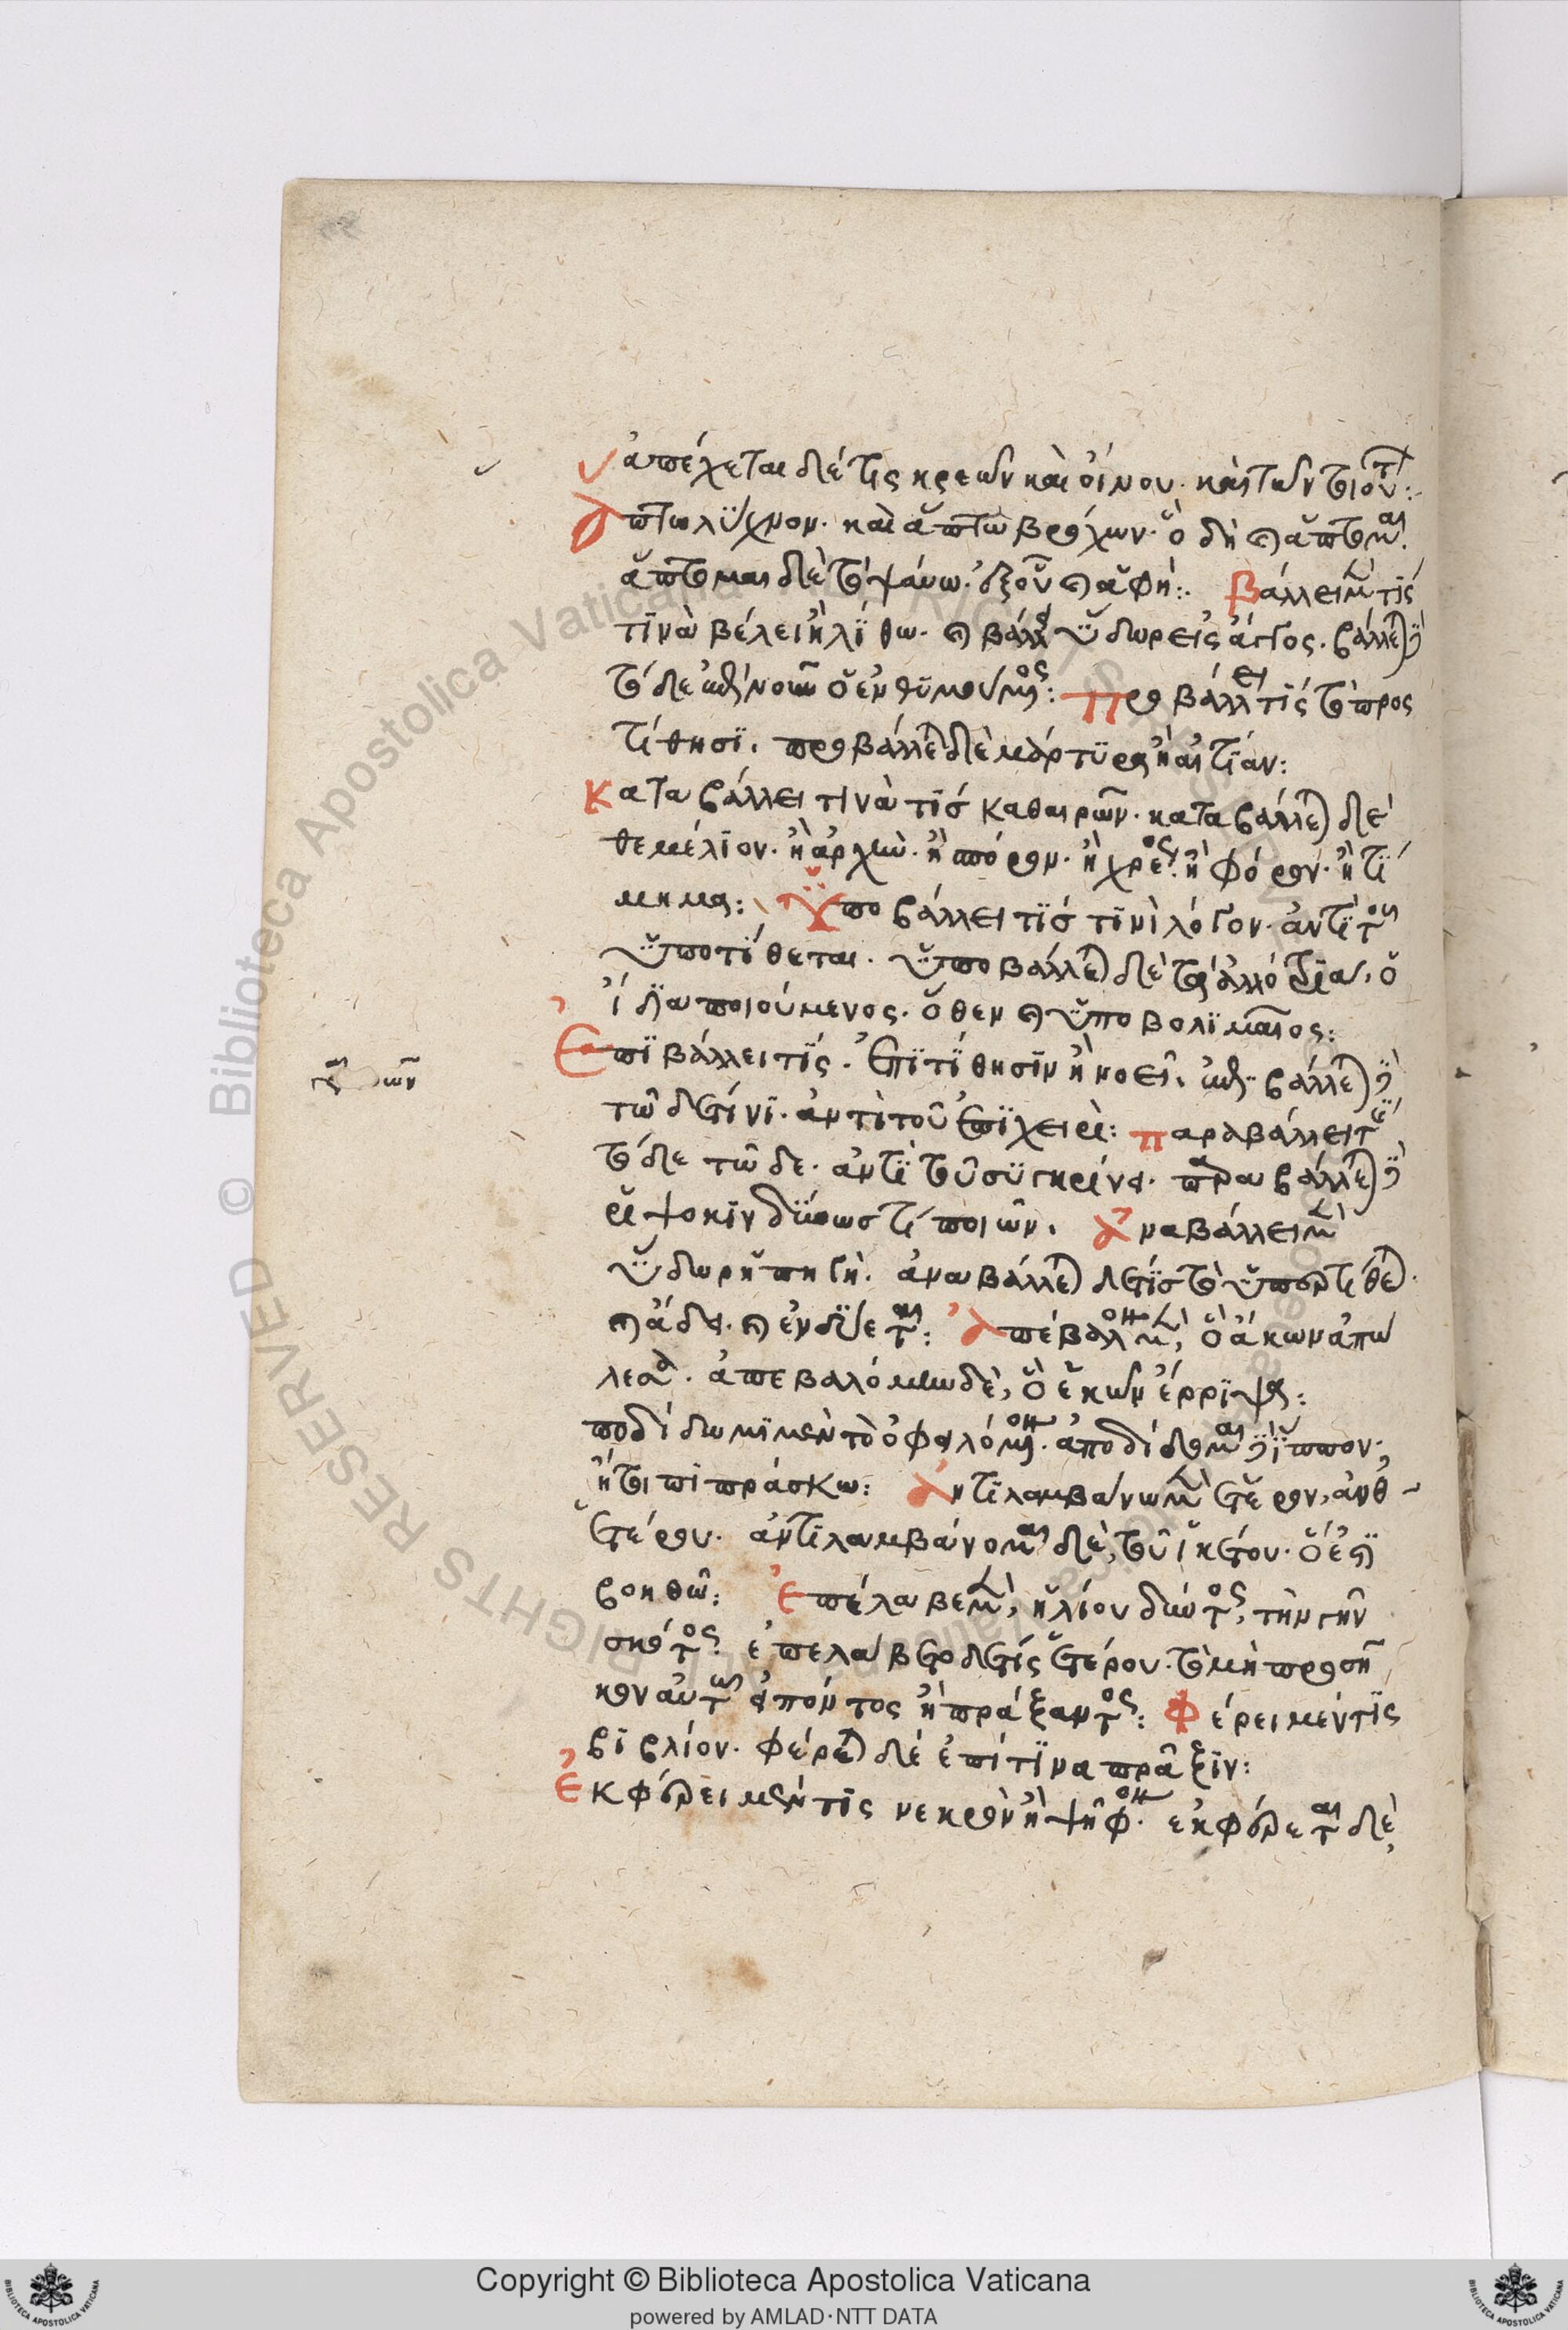 ἀπέχεται δέ τις κρεῶν καὶ οἴνου. καὶ τῶν τοιούτ:
ἅπτω λύχνον. καὶ ἅπτω βρόχον. ὃ δὴ καὶ ἅπτομαι.
ἅπτομαι δὲ τὸ ψαύω. ἐξ οὗ καὶ ἁφή:. Βάλλει μὲν τίς
τινὰ βέλει ἢ λίθω. καὶ βάλλει ὕδωρ εἰς ἄγγος. βάλλεται δὲ
τόδε νοῦν ὁ ἐνθυμούμενος: Προβάλλει τίς τὸ προς
τίθησι. προβάλλεται δὲ μάρτυρας ἢ αἰτίαν:
Καταβάλλει τινὰ τίσ καθαιρῶν. καταβάλλεται δὲ
θεμέλιον. ἢ ἀρχὴν. ἢ πόρον. ἢ χρέος. ἢ φόρον. ἢ τί
μημα: Ὑποβάλλει τίσ τινὶ λόγον. ἀντὶ τοῦ
ὑποτίθεται. ὑποβάλλεται δὲ τὰ ἀλλότρια, ὁ
ἴδια ποιούμενος. ὅθεν καὶ ὑποβολιμαῖος:
Ἐπιβάλλει τίς. ἐπιτίθησιν ἢ νοεῖ. βάλλεται δὲ
τῶ δεῖνι. ἀντὶ τοῦ ἐπιχειρεῖ: παραβάλλει τίς
τόδε τῶδε. ἀντὶ τοῦ συγκρίνει. παραβάλλεται δὲ
ῥιψοκινδύνως τί ποιῶν. ἀναβάλλει μὲν
ὕδωρ ἡ πηγή. ἀναβάλλεται δέ τίσ τὸ ὑπερτίθεται.
καὶ ἄδει. καὶ ἐνδύεται: ἀπέβαλον μὲν, ὃ ἄκων ἀπώ
λεσα. ἀπεβαλόμην δὲ, ὃ ἑκὼν ἔρριψα:
ποδίδωμι μὲν τὸ ὀφειλόμενον. ἀποδίδομαι δὲ ἵππον,
ἤτοι πιπράσκω: ἀντιλαμβάνω μὲν ἕτερον, ἀνθ
ἑτέρου. ἀντιλαμβάνομαι δὲ, τοῦ ἱκέτου. ὅ ἐστι
βοηθῶ: ἐπέλαβε μὲν, ἡλίου δύντος, τὴν γῆν
σκότος. ἐπελάβετο δέ τίς ἑτέρου. τὸ μὴ προσῆ
κον αὐτῶ εἰπόντος ἢ πράξαντος: Φέρει μέν τις
βιβλίον. φέρεται δὲ ἐπί τινα πρᾶξιν:
ἐκφέρει μέν τις νεκρὸν ἢ ψῆφον. ἐκφέρεται δὲ,